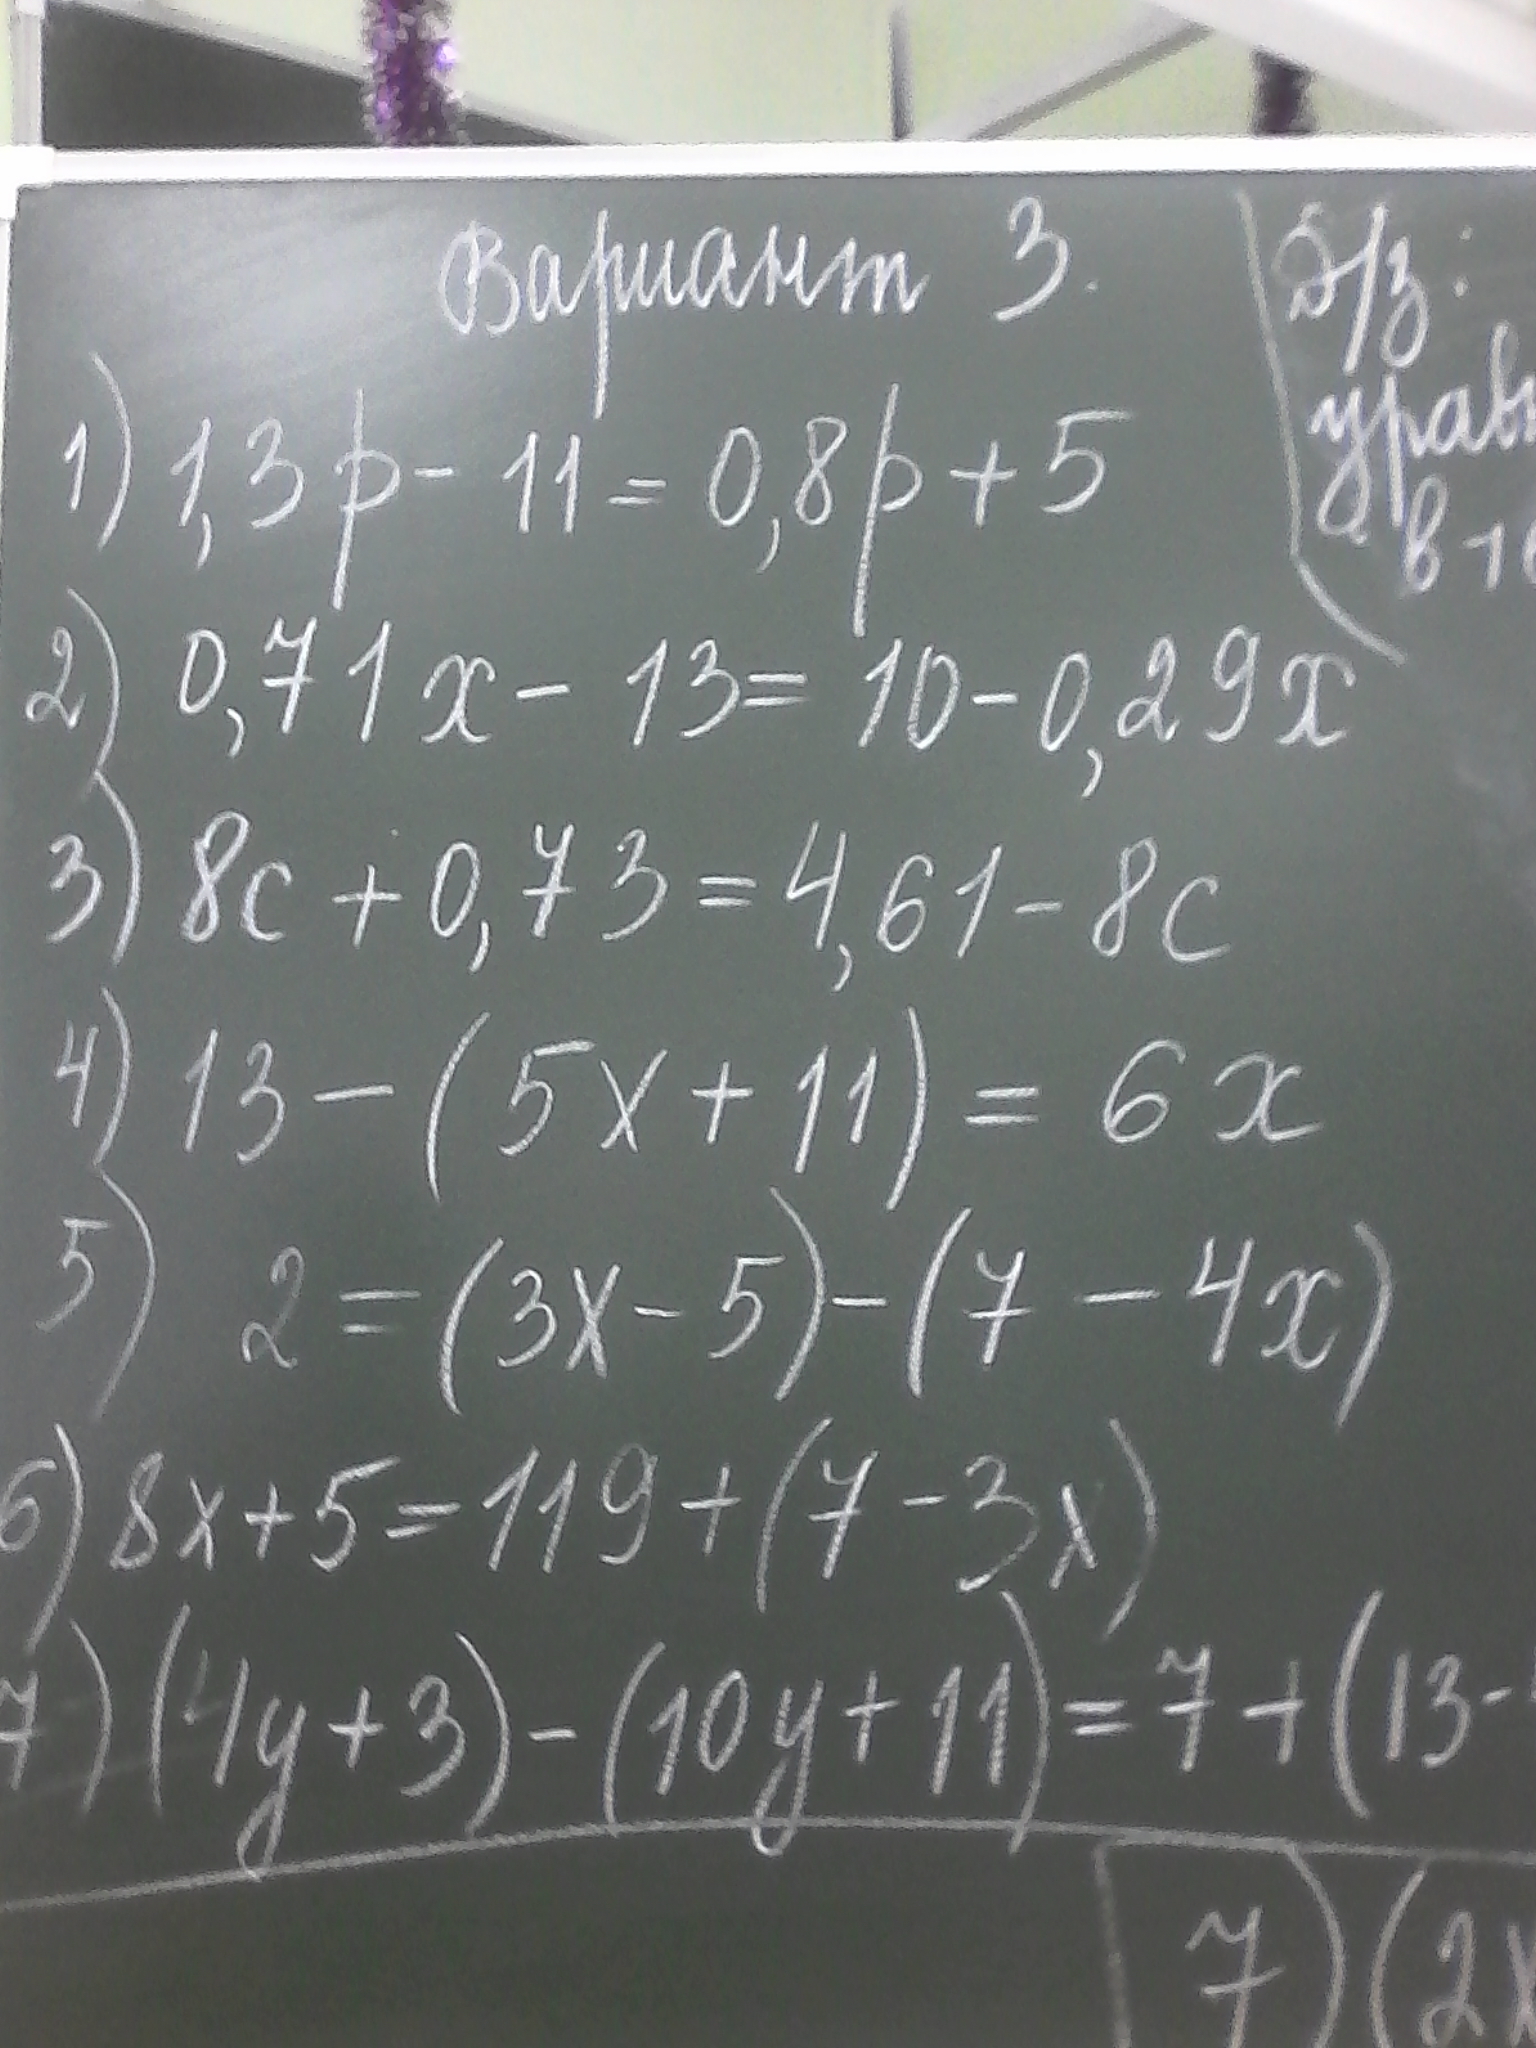 Вариант 3.
Д/з:
1) 1,3p - 11 = 0,8p + 5
2) 0,71x - 13 = 10 - 0,29x
3) 8c + 0,73 = 4,61 - 8c
4) 13 - (5x + 11) = 6x
5) 2 = (3x - 5) - (7 - 4x)
6) 8x + 5 = 119 + (7 - 3x)
7) (4y + 3) - (10y + 11) = 7 + (13 -
7) (2x